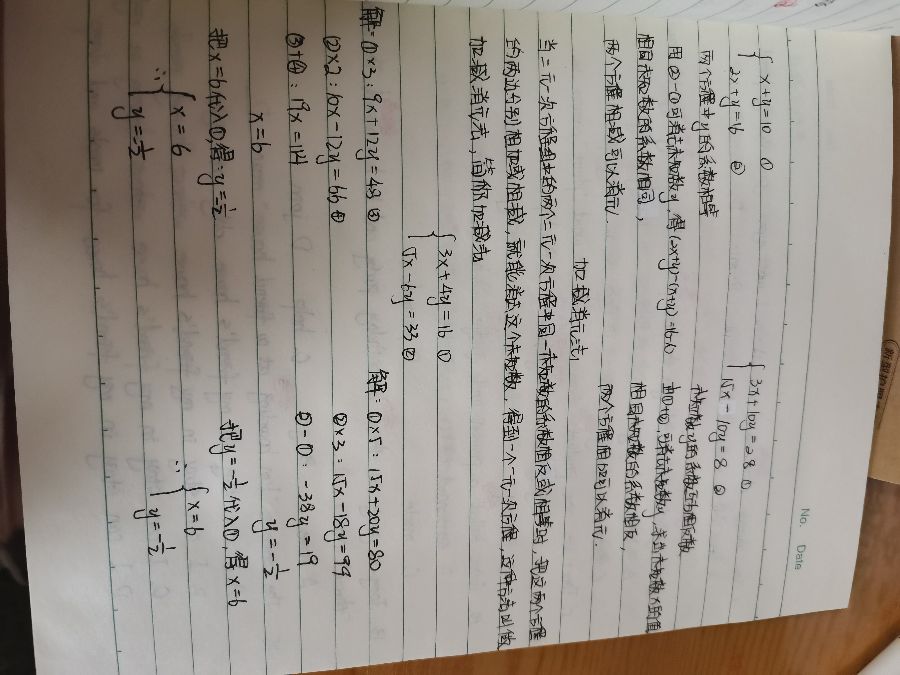 No.
Date
{ x+y=10 ①
2x+y=16 ②
两个方程中y的系数相等
用②-①可消去未知数y,得(2x+y)-(x+y)=16-10
相同未知数的系数相同,
两个方程相减可以消元.
{ 3x+10y=2.8 ①
15x-10y=8 ②
未知数y的系数互为相反数
由①+②,可消去未知数y,求出未知数x的值
相同未知数的系数相反,
两个方程相加可以消元.
加减消元法
当二元一次方程组中的两个二元一次方程中同一未知数的系数相反或相等时,把这两个方程
的两边分别相加或相减,就能消去这个未知数,得到一个一元一次方程,这种方法叫做
加减消元法,简称加减法
{ 3x+4y=16 ①
5x-6y=33 ②
解:①×3:9x+12y=48 ③
②×2:10x-12y=66 ④
③+④:19x=114
x=6
把x=6代入①,得:y=-1/2
∴{ x=6
y=-1/2
解:①×5:15x+20y=80
②×3:15x-18y=99
②-①:-38y=19
y=-1/2
把y=-1/2代入①,得x=6
∴{ x=6
y=-1/2